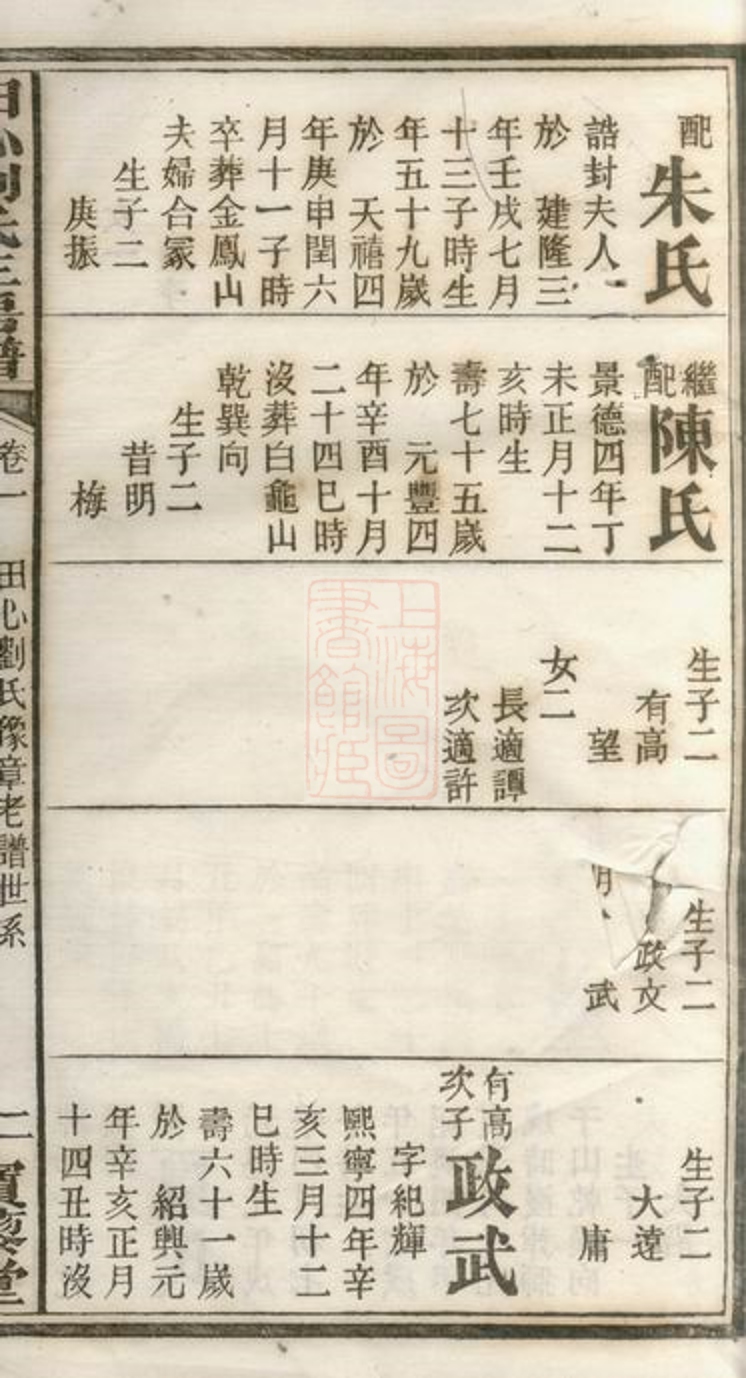 配朱氏
誥封夫人
於 建隆三
年壬戌七月
十三子時生
年五十九歲
於 天禧四
年庚申閏六
月十一子時
卒葬金鳳山
夫婦合冢
生子二
庚振
繼配陳氏
景德四年丁
未正月十二
亥時生
壽七十五歲
於 元豐四
年辛酉十月
二十四巳時
沒葬白龜山
乾巽向
生子二
昔明
梅
生子二
有高
望
女二
長適譚
次適許
生子二
政文
武
生子二
大遠
庸
有高次子政武
字紀輝
熙寧四年辛
亥三月十二
巳時生
壽六十一歲
於 紹興元
年辛亥正月
十四丑時沒
田心劉氏三修譜
卷一
田心劉氏豫章老譜世系
二
堂
上海圖書館藏